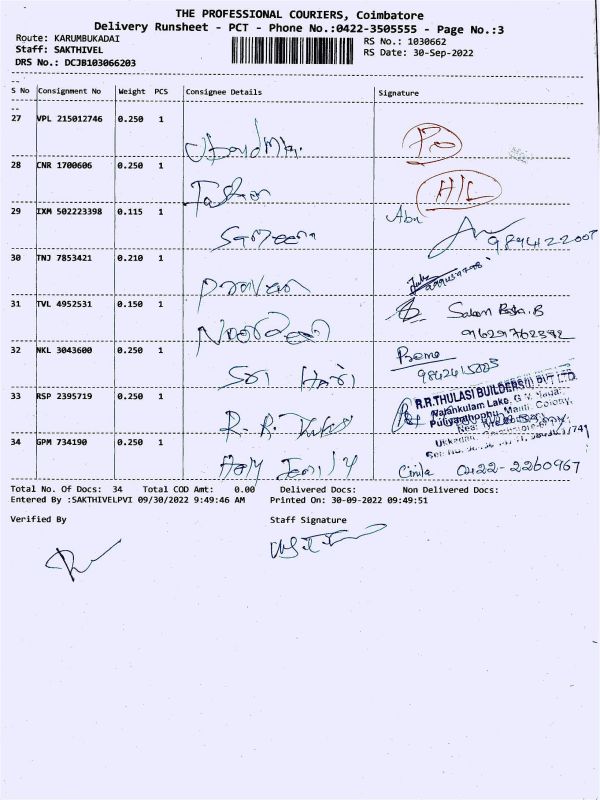 THE PROFESSIONAL COURIERS, Coimbatore
Delivery Runsheet - PCT - Phone No.:0422-3505555 - Page No.:3
Route: KARUMBUKADAI RS No.: 1030662
Staff: SAKTHIVEL RS Date: 30-Sep-2022
DRS No.: DCJB103066203
S No Consignment No Weight PCS Consignee Details Signature
27 VPL 215012746 0.250 1
28 CNR 1700606 0.250 1 H/L
29 IXM 502223398 0.115 1 Sameena Abn 9894422007
30 TNJ 7853421 0.210 1 Praveen
31 TVL 4952531 0.150 1 Salam Basha.B
32 NKL 3043600 0.250 1 Sri Hari
33 RSP 2395719 0.250 1 R.R.THULASI BUILDERS(I) PVT LTD.
34 GPM 734190 0.250 1 Holy Family 0422-2260967
Total No. Of Docs: 34 Total COD Amt: 0.00 Delivered Docs: Non Delivered Docs:
Entered By :SAKTHIVELPVI 09/30/2022 9:49:46 AM Printed On: 30-09-2022 09:49:51
Verified By Staff Signature